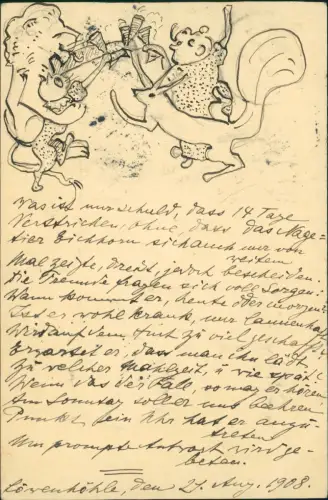 Was ist nur schuld, dass 14 Tage
Verstrichen, ohne, dass das Nage-
tier Eichhorn sich auch nur von
weitem
Mal zeigte, dreist, jedoch bescheiden.
Die Freunde fragen sich voll Sorgen:
Wann kommt er, heute oder morgen?
Ist er wohl krank, nur launenhaft
Wird auf dem Amt zu viel geschafft?
Erwartet er, dass man ihn lädt?
Zu welcher Mahlzeit, u wie spät?
Wenn das der Fall, so mag er hören
Am Sonntag soll er uns beehren
Punkt ein Uhr hat er anzu
treten
Um prompte Antwort wird ge-
beten.
Löwenhöhle, den 21. Aug. 1908.